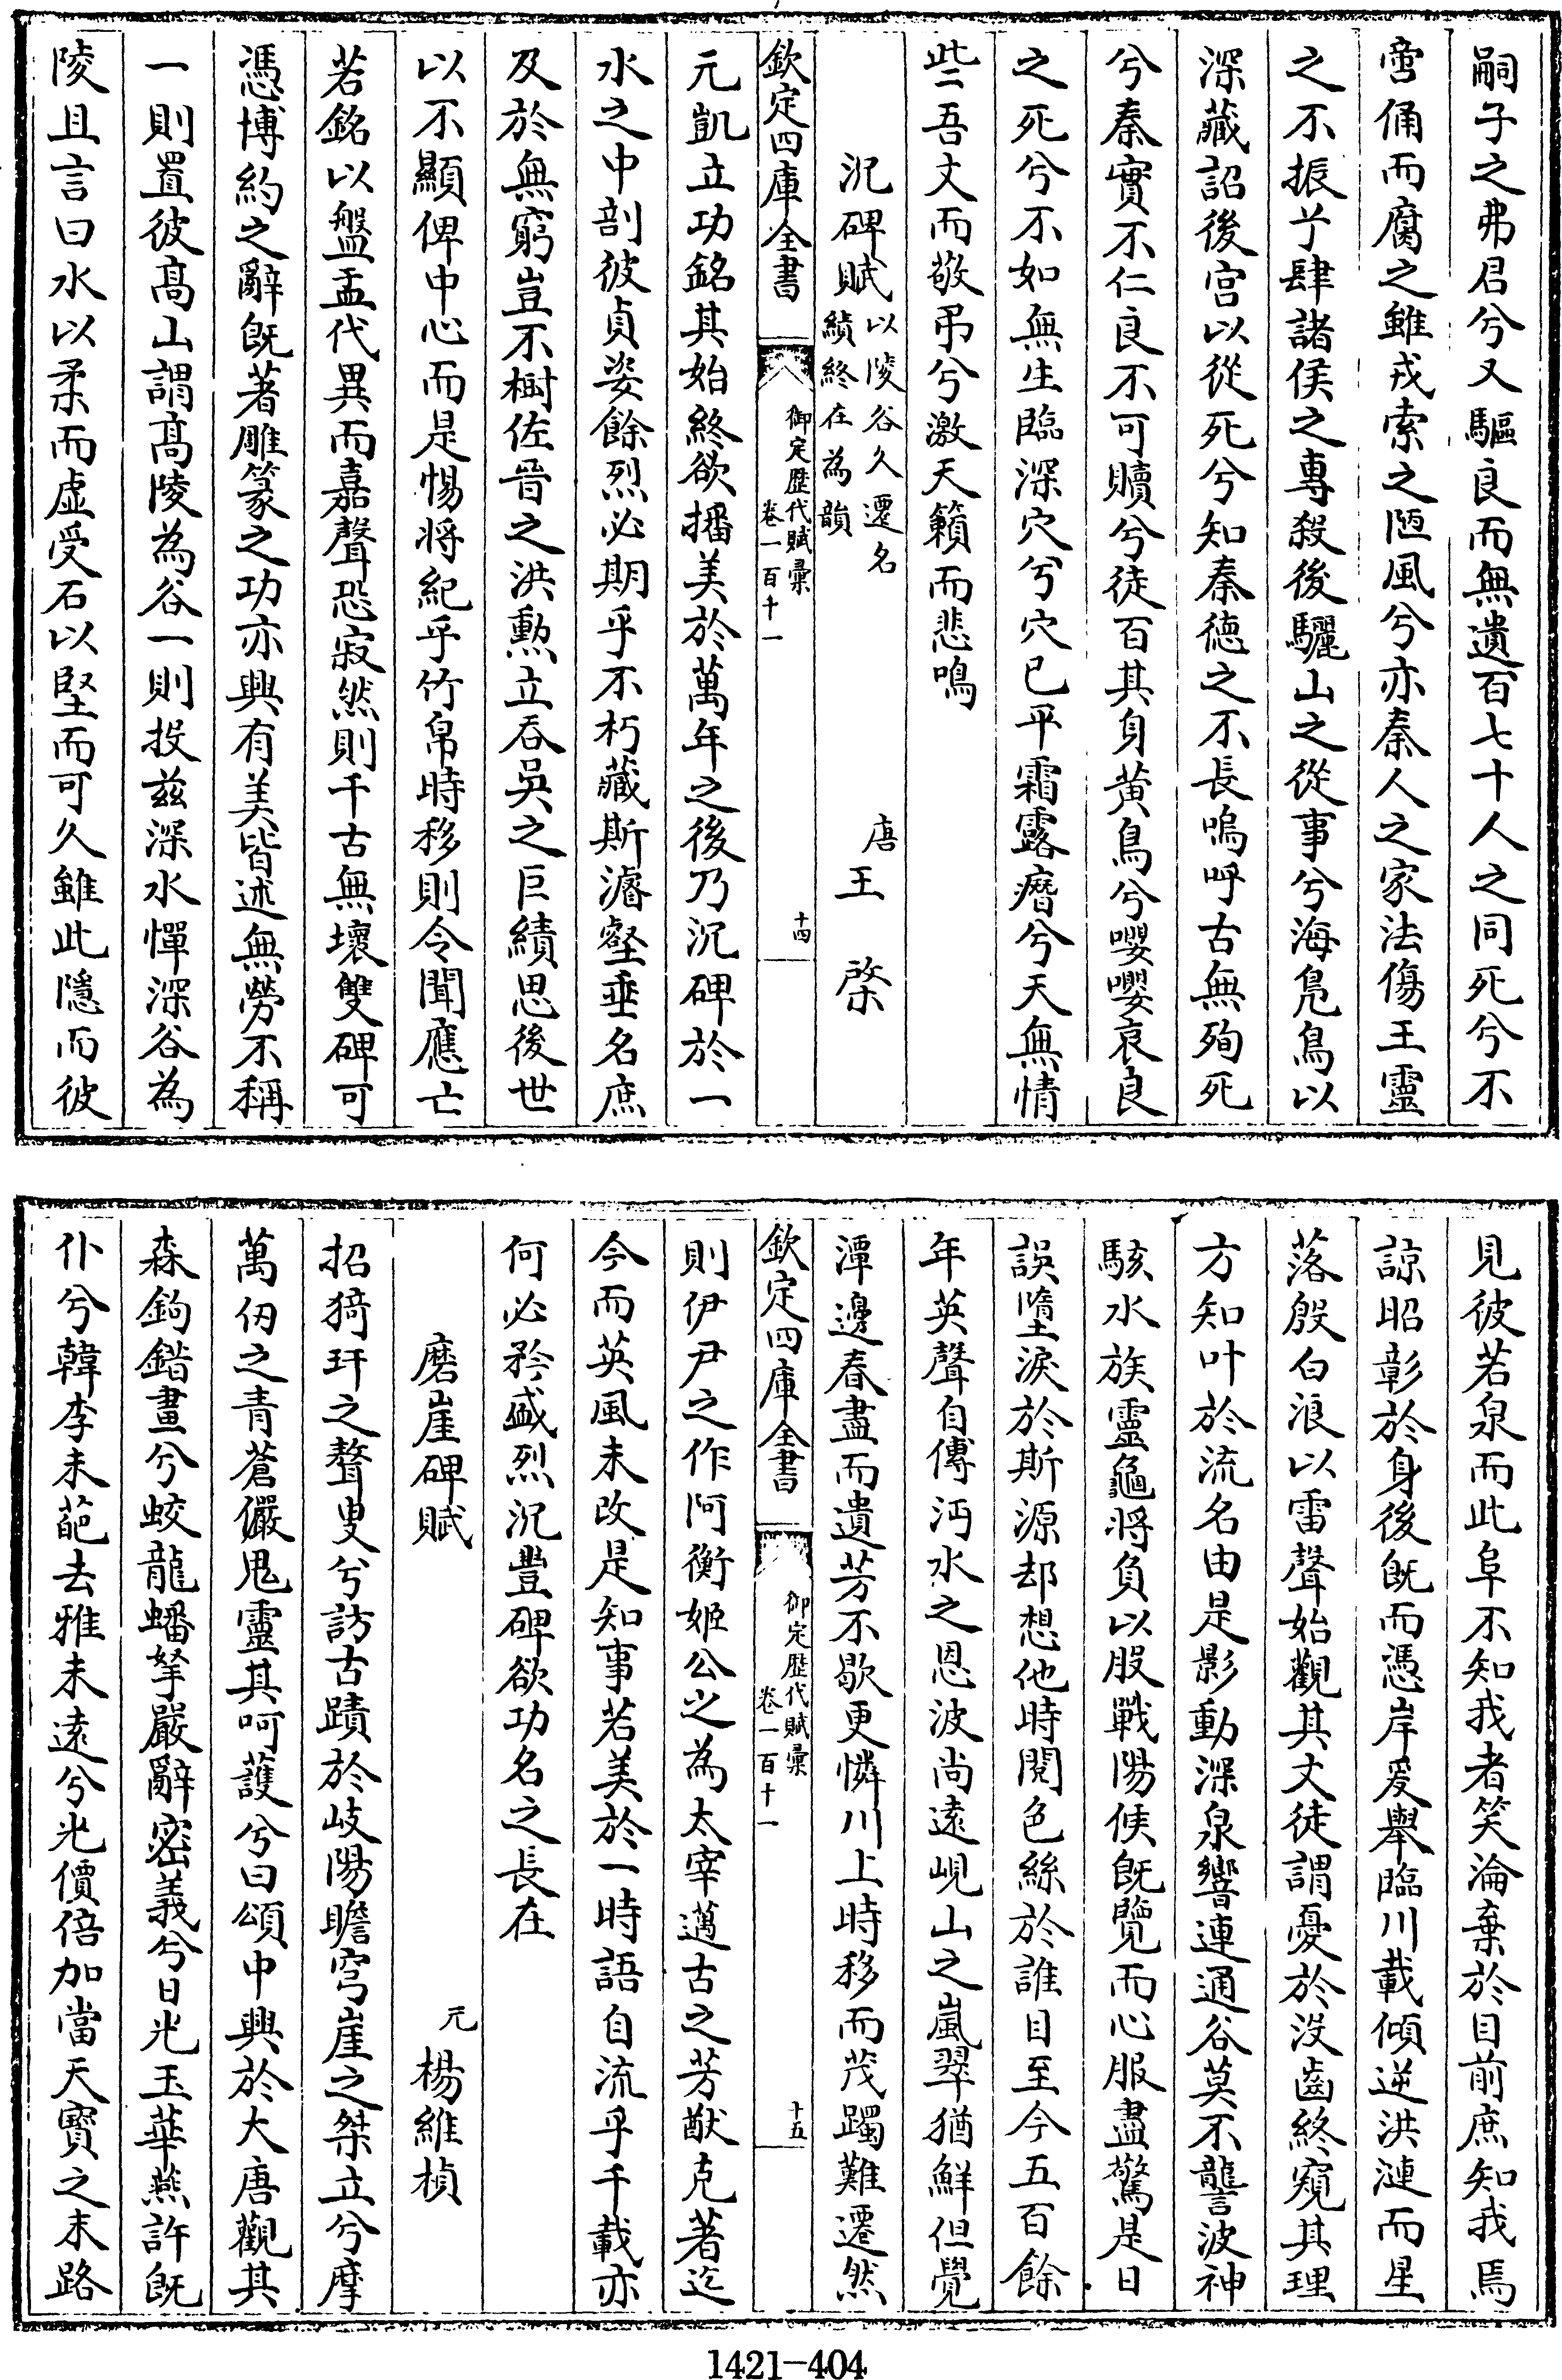 嗣子之弗君兮又驅良而無遺百七十人之同死兮不
啻俑而腐之雖戎索之陋風兮亦秦人之家法傷王靈
之不振兮肆諸侯之專殺後驪山之從事兮海鳬鳥以
深藏詔後宮以從死兮知秦徳之不長嗚呼古無殉死
兮秦實不仁良不可贖兮徒百其身黄鳥兮嚶嚶哀良
之死兮不如無生臨深穴兮穴已平霜露瘠兮天無情
些吾文而敬弔兮激天籟而悲鳴
沉碑賦以陵谷久遷名績終在為韻 唐王棨
欽定四庫全書 御定歴代賦彙 卷一百十一 十四
元凱立功銘其始終欲播美於萬年之後乃沉碑於一
水之中剖彼貞姿餘烈必期乎不朽藏斯濬壑垂名庶
及於無窮豈不樹佐晉之洪勲立吞吳之巨績思後世
以不顯俾中心而是惕將紀乎竹帛時移則令聞應亡
若銘以盤盂代異而嘉聲恐寂然則千古無壞雙碑可
憑博約之辭旣著雕篆之功亦興有美皆述無勞不稱
一則置彼髙山謂髙陵為谷一則投兹深水憚深谷為
陵且言曰水以柔而虚受石以堅而可久雖此隱而彼
見彼若泉而此阜不知我者笑淪棄於目前庶知我焉
諒昭彰於身後旣而憑岸爰舉臨川載傾逆洪漣而星
落殷白浪以雷聲始觀其文徒謂憂於没齒終窺其理
方知叶於流名由是影動深泉響連通谷莫不讋波神
駭水族靈龜將負以股戰陽侯旣覽而心服盡驚是日
誤墮淚於斯源却想他時閱色絲於誰目至今五百餘
年英聲自傳沔水之恩波尚逺峴山之嵐翠猶鮮但覺
潭邊春盡而遺芳不歇更憐川上時移而茂躅難遷然
欽定四庫全書 御定歴代賦彙 卷一百十一 十五
則伊尹之作阿衡姬公之為太宰邁古之芳猷克著迄
今而英風未改是知事若美於一時語自流乎千載亦
何必矜盛烈沉豐碑欲功名之長在
磨崖碑賦 元楊維楨
招猗玕之聱叟兮訪古蹟於岐陽瞻穹崖之桀立兮摩
萬仞之青蒼儼鬼靈其呵護兮曰頌中興於大唐觀其
森鉤鐕畫兮蛟龍蟠拏嚴辭密義兮日光玉華燕許旣
仆兮韓李未葩去雅未逺兮光價倍加當天寳之末路
1421-404